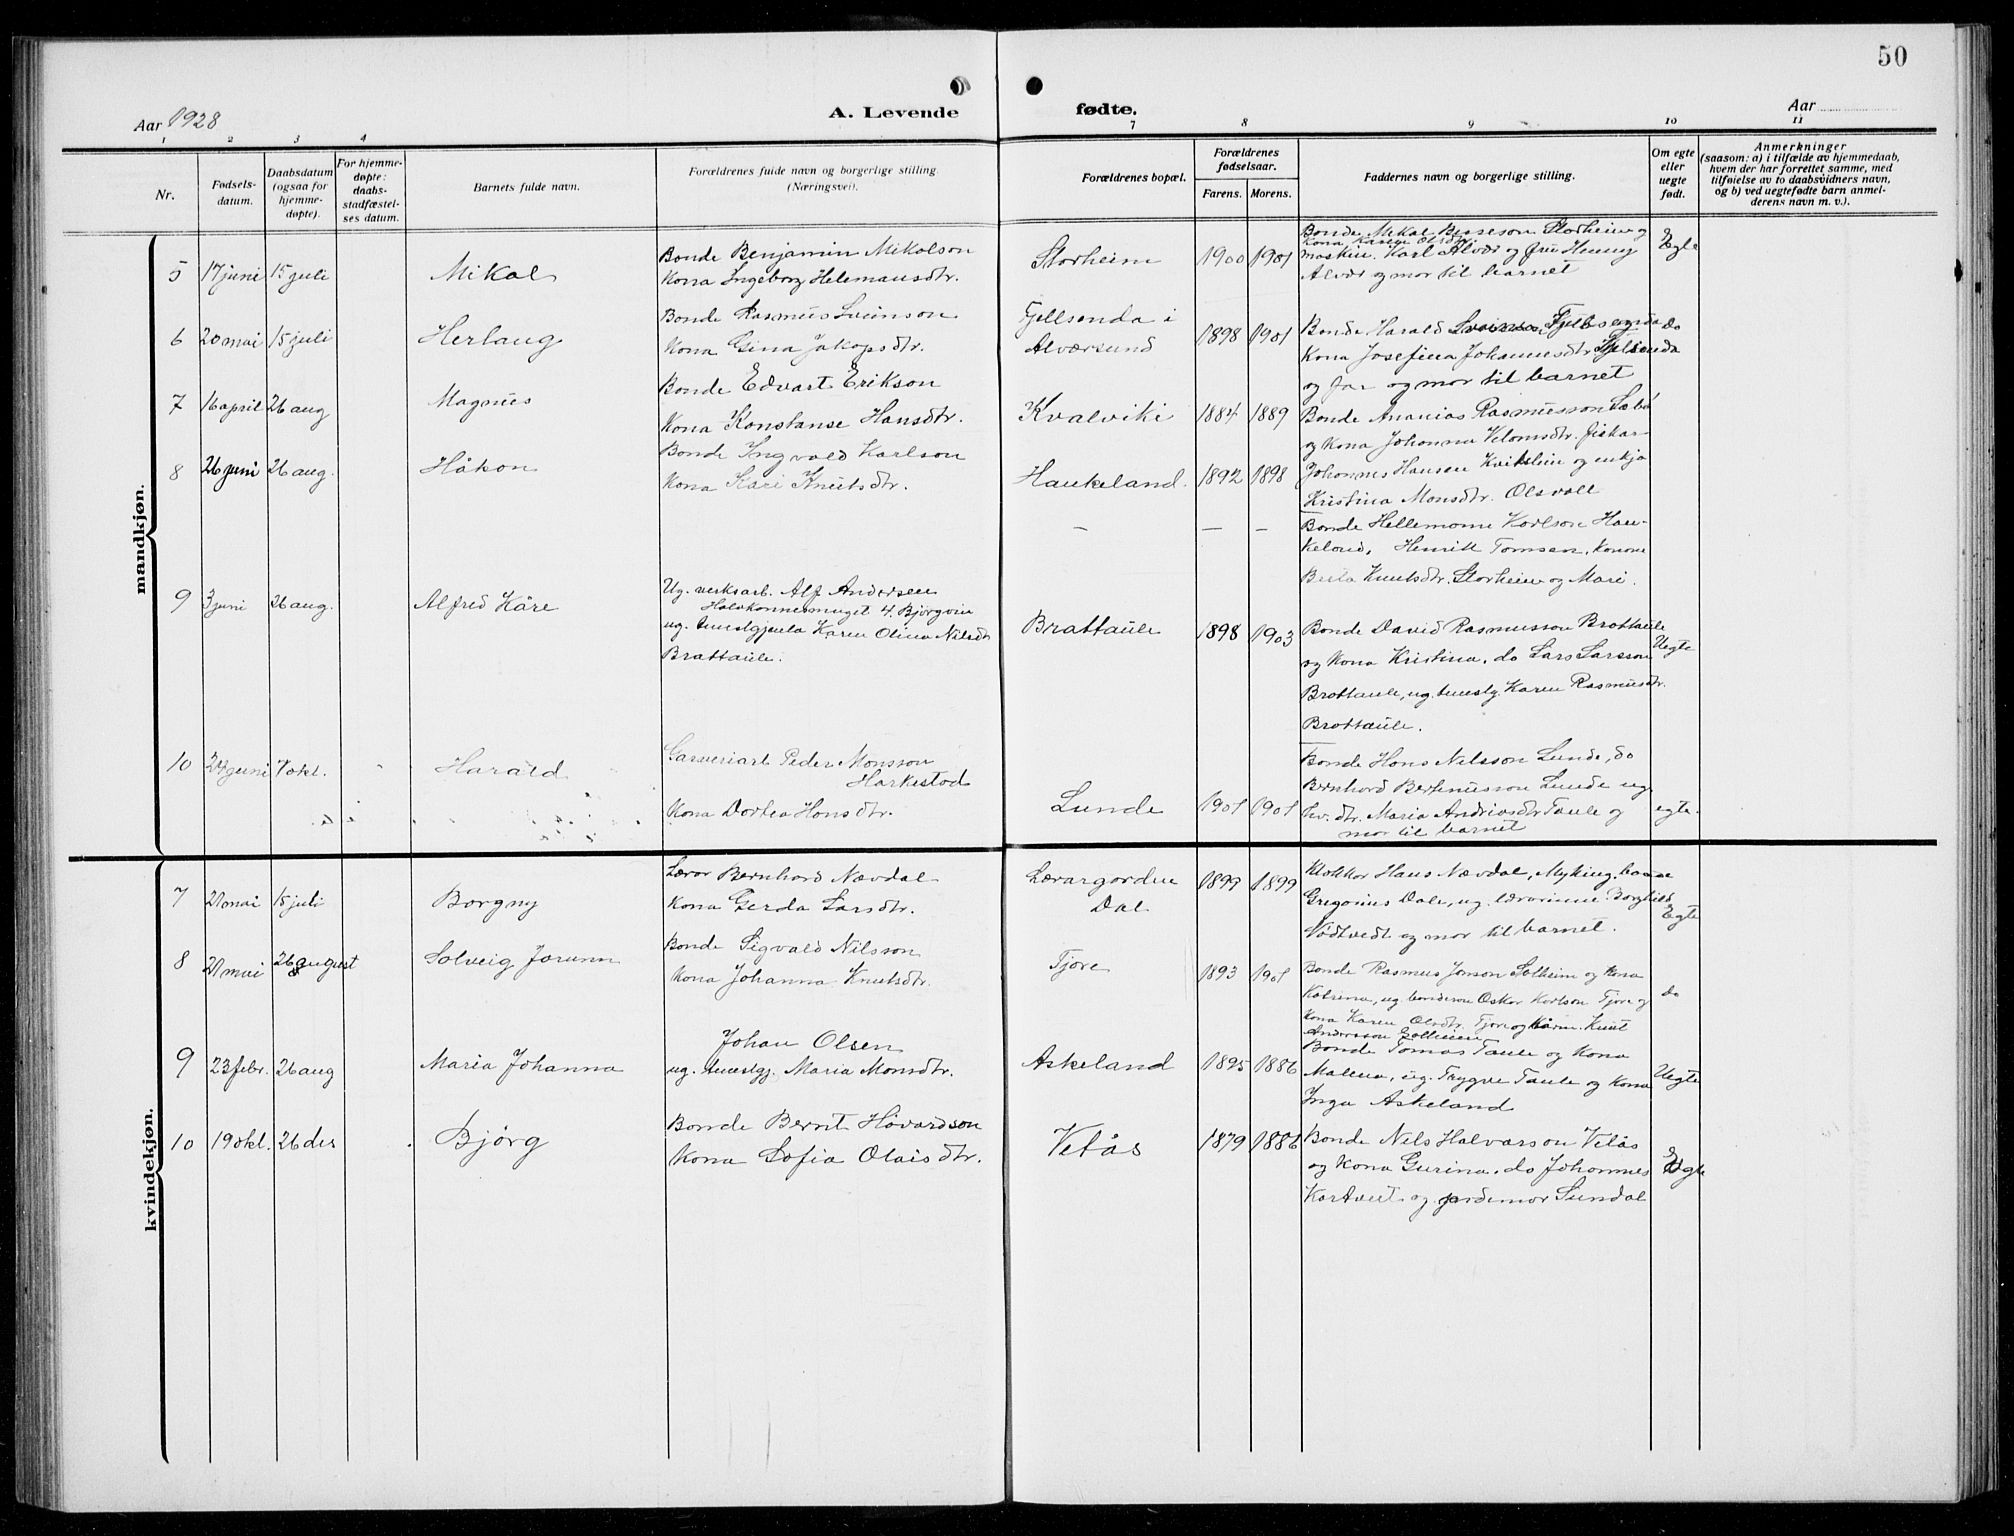 50
Aar 1928
A. Levende
fødte.
Aar
1 2 3 4
7 8 9 10 11
Nr.
Fødsels-
datum.
Daabsdatum
(ogsaa for
hjemme-
døpte).
For hjemme-
døpte:
daabs-
stadfæstel-
ses datum.
Barnets fulde navn.
Forældrenes fulde navn og borgerlige stilling.
(Næringsvei).
Forældrenes bopæl.
Forældrenes
fødselsaar.
Farens. Morens.
Faddernes navn og borgerlige stilling.
Om egte
eller
uegte
født.
Anmerkninger
(saasom: a) i tilfælde av hjemmedaab,
hvem der har forrettet samme, med
tilføielse av to daabsvidners navn,
og b) ved uegtefødte barn anmel-
derens navn m. v.).
mandkjøn.
5 17 juni 15 juli Mikal
Bonde Benjamin Mikalson
Kona Ingeborg Helemansdtr.
Storheim 1900 1901
Storheim og
Kona Karen Olsdtr.
maskin. Karl Alver og fru Henny
Alver og mor til barnet
Egte
6 20 mai 15 juli Herlaug
Bonde Rasmus Sveinson
Kona Gina Jakopsdtr.
Fjellsenda i
Alversund
1898 1901
Bonde Harald Fjellsenda
Kona Josefina Johannesdtr. Fjelsenda
og far og mor til barnet
do
7 16 april 26 aug Magnus
Bonde Edvart Erikson
Kona Konstanse Hansdtr.
Kvalviki 1884 1889
Bonde Ananias Rasmusson Sæbø
og Kona Johanna fiskar
8 26 juni 26 aug. Håkon
Bonde Ingvald Karlson
Kona Kari Knutsdtr.
Haukeland. 1892 1898
Johannes Hansen og enkja
Kristina Monsdtr. Olsvoll
– – –
Bonde Hellemane Karlson Hau-
keland, Henrik Tomsen, Konone
Berta Knutsdtr. Storheim og Mari.
9 3 juni 26 aug. Alfred Kåre
Ug. verksarb. Alf Andersen
4. Bjørgvin
ug. tenestgjenta Karen Olina Nilsdtr
Brattaule.
Brattaule 1898 1903
Bonde David Rasmusson Brattaule
og Kona Kristina. do Lars Larsson
Brattaule, ug. tenestg. Karen Rasmusdtr.
Brattaule.
Uegte
10 24 juni 7 okt. Harald
Garveriarb. Peder Monsson
Harkestad
Kona Dortea Hansdtr.
Lunde 1901 1901
Bonde Hans Nilsson Lunde, do
Bernhard Bertinusson Lunde ug.
Maria Andriasdtr Taule og
mor til barnet
egte.
kvindekjøn.
7 21 mai 15 juli Borgny
Lærar Bernhard Nævdal
Kona Gerda Larsdtr.
Lærargarden
Dal
1899 1899
Klokkar Hans Nævdal, Myking, bonde
Gregorius Dale, ug. lærarinne Borghild
Nødtvedt og mor til barnet.
Egte
8 21 mai 26 august Solveig Jorunn
Bonde Sigvald Nilsson
Kona Johanna Knutsdtr.
Tjore 1893 1901
Bonde Rasmus Jonson Solheim og Kona
Katrina, ug. bondeson Oskar Karlson Tjore og
Kona Karen Olsdtr. Tjore og Knut
Andersson Solheim
do
9 23 febr. 26 aug Maria Johanna
Johan Olsen
ug. tenestgj. Maria Monsdtr.
Askeland 1895 1886
Bonde Tomas Taule og Kona
Malena, ug. Trygve Taule og Kona
Inga Askeland
Uegte
10 19 okt. 26 des Bjørg
Bonde Bernt Håvardson
Kona Sofia Olaisdtr.
Vetås 1879 1886
Bonde Nils Halvarson Vetås
og Kona Gurina. do Johannes
Kartveit og jordemor Sundal
Egte